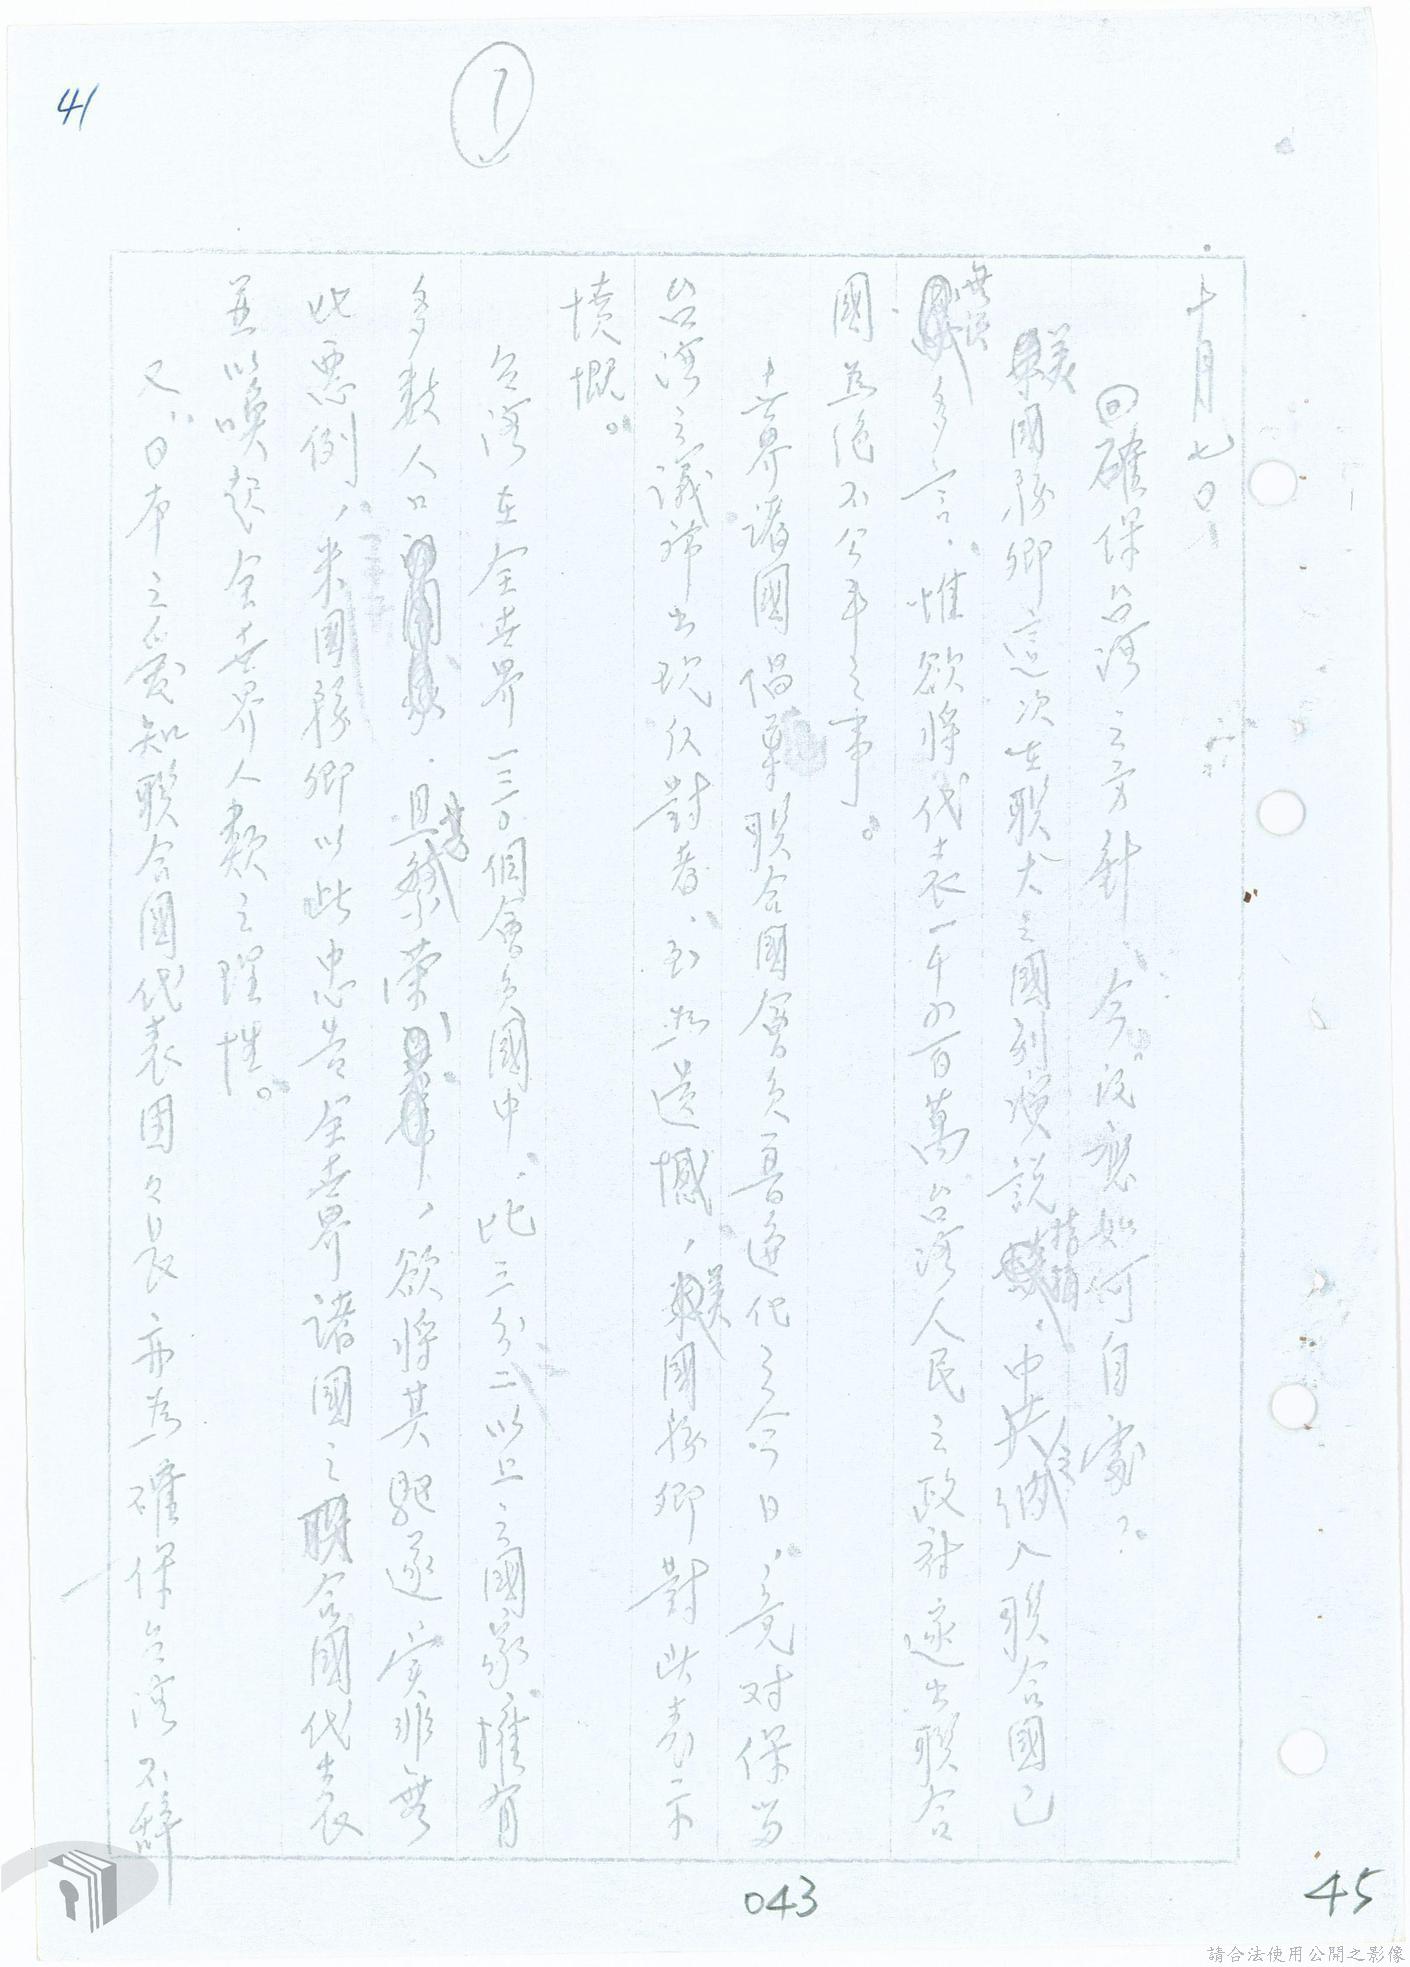 41
1
十月七日
回確保台湾之方針、今後應如何自處？
美國務卿這次在联大之國別演說指摘、中共納入联合國已
無須多言、惟欲將代表一千四百萬台湾人民之政府逐出联合
國為绝不公平之事。
世界諸國倡導联合國會员普遍化之今日，竟对保留
台湾之議席出现仅對者、至极遗憾，美國務卿對此表示
憤慨。
台湾在全世界一三〇個會员國中、比三分二以上之國家擁有
多数人口、且繁榮，欲將其驱逐，实非無
此惡例，米國務卿以此忠告全世界諸國之联合國代表
並以喚起全世界人類之理性。
又、日本之愛知联合國代表团々長亦為確保台湾不辞
043
45
請合法使用公開之影像